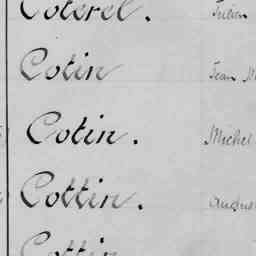 Coterel. Julien
Cotin Jean M
Cotin. Michel
Cottin. August
Cottin